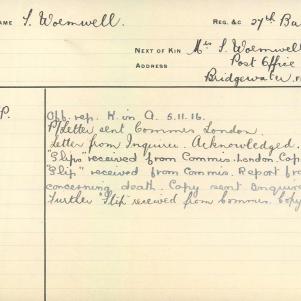 NAME S. Wormwell. REG. &C 27th Ba
NEXT OF KIN Mrs S. Wormwell
ADDRESS Post Office
Bridgewater,
P.
Off. rep. K. in A. 5.11.16.
P/Letter sent Commis London.
Letter from Inquirer. Acknowledged.
"Slips" received from Commis. London. Cop
"Slip" received from Commis. Report fro
concerning death. Copy sent Enquire
Further "Slip" received from Commis. Copy